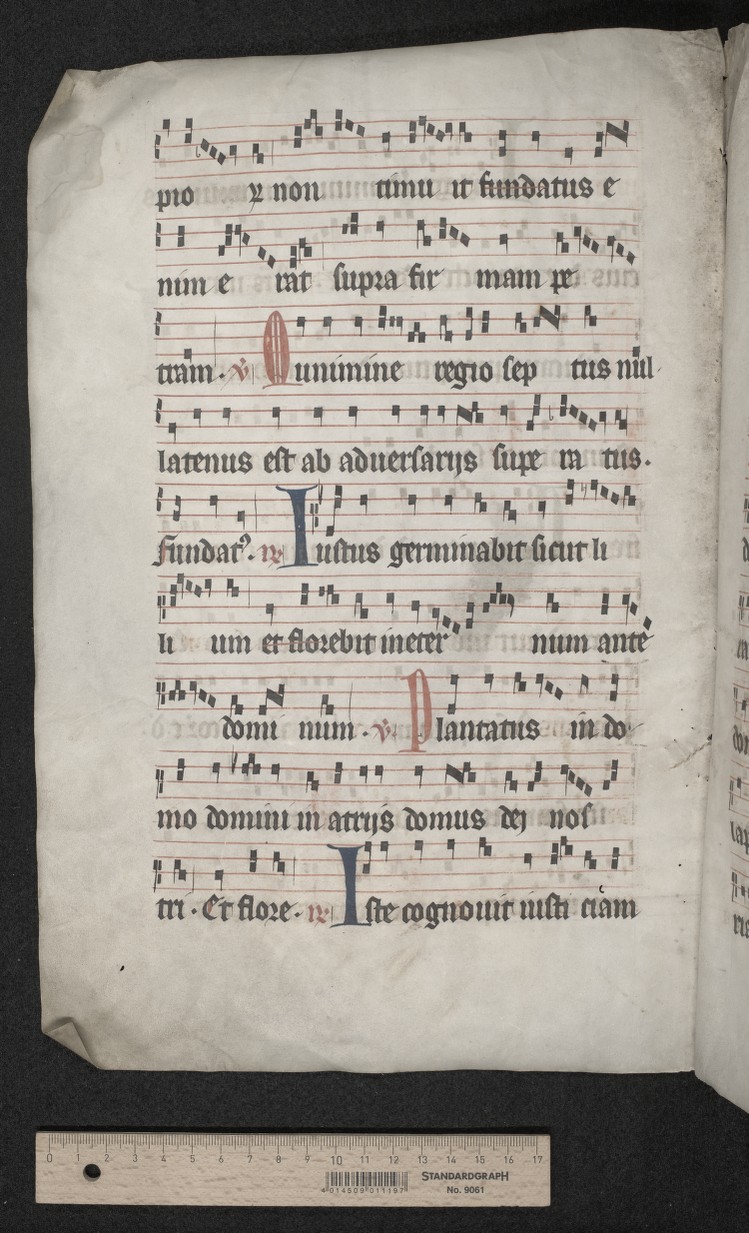 pio ⁊ non timu it fundatus e
nim e rat supra fir mam pe
tram. ℣ Munimine regio sep tus nul
latenus est ab aduersarijs supe ra tus.
fundatꝰ. ℟ Iustus germinabit sicut li
li um et florebit ineter num ante
domi num. ℣. Plantatus in do
mo domini in atrijs domus dej nos
tri. Et flore. ℟ Iste cognouit iusti ciam
0 1 2 3 4 5 6 7 8 9 10 11 12 13 14 15 16 17
4 014509 011197
STANDARDGRAPH
No. 9061